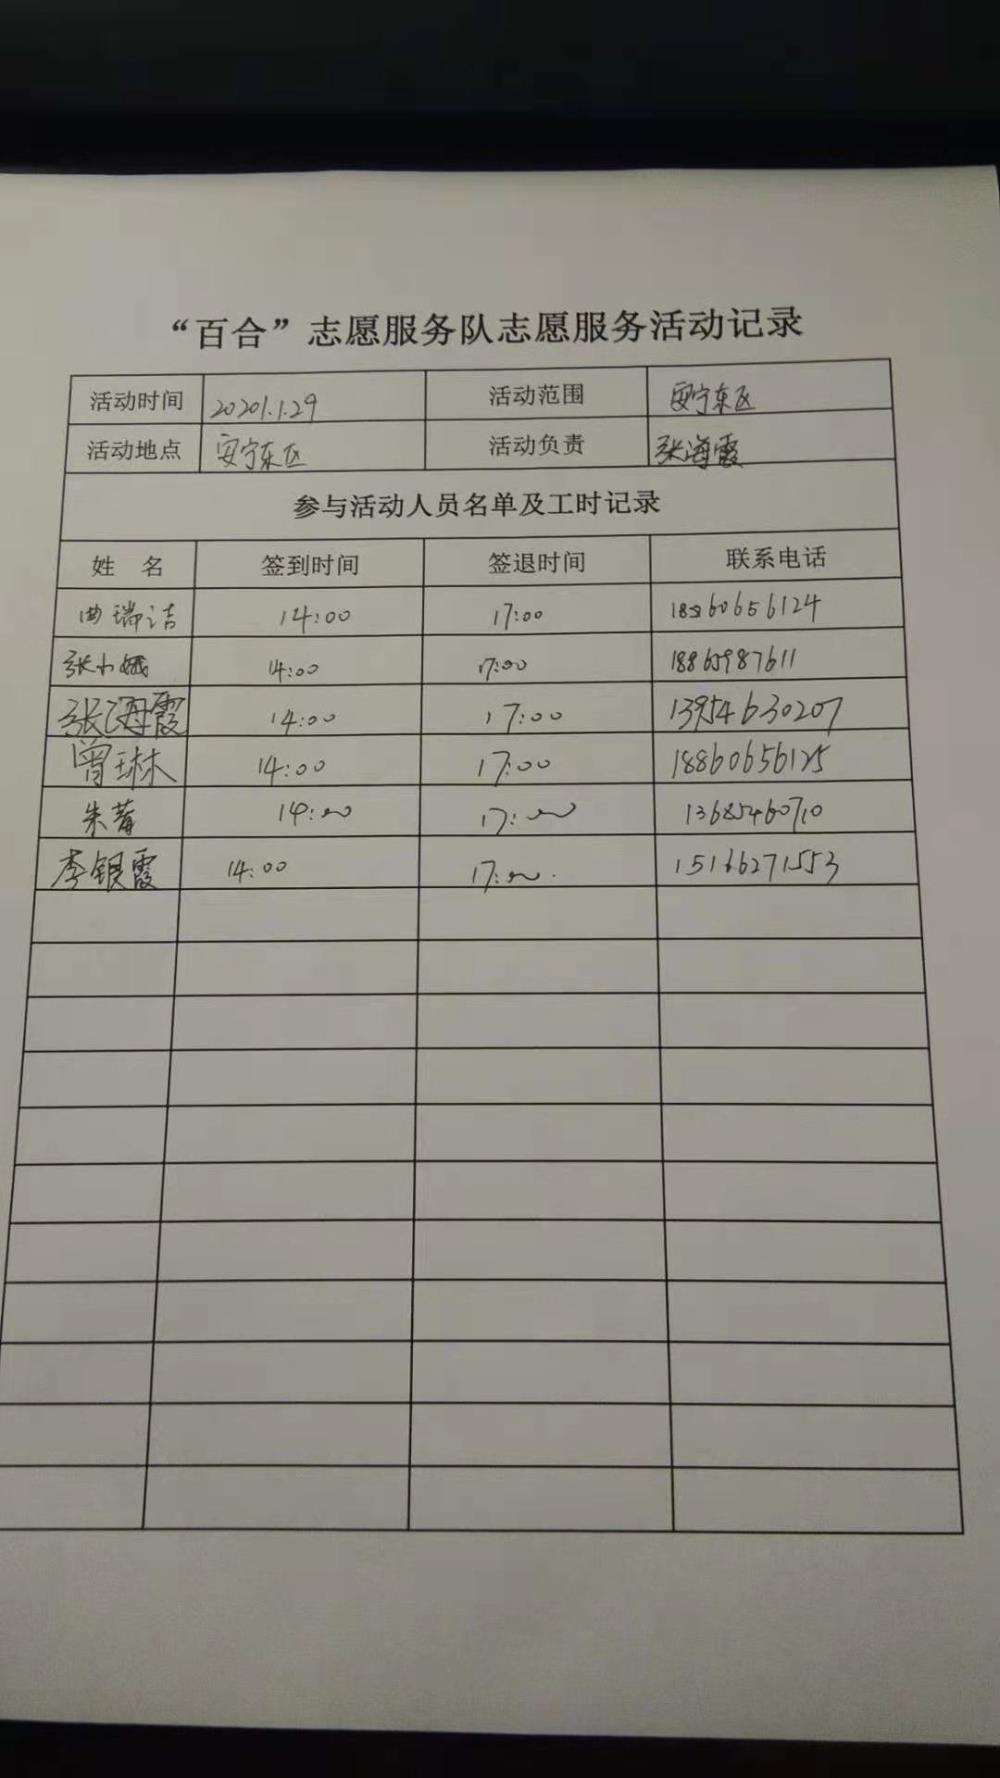 “百合”志愿服务队志愿服务活动记录
活动时间 20201.1.29 活动范围 安宁东区
活动地点 安宁东区 活动负责 张海霞
参与活动人员名单及工时记录
姓 名 签到时间 签退时间 联系电话
曲瑞洁 14:00 17:00
张小娥 14:00 17:00 18865987611
张海霞 14:00 17:00 13954630207
曾琳 14:00 17:00 18860656125
朱莓 14:00 17:00 13685460710
李银霞 14:00 17:00. 15166271553